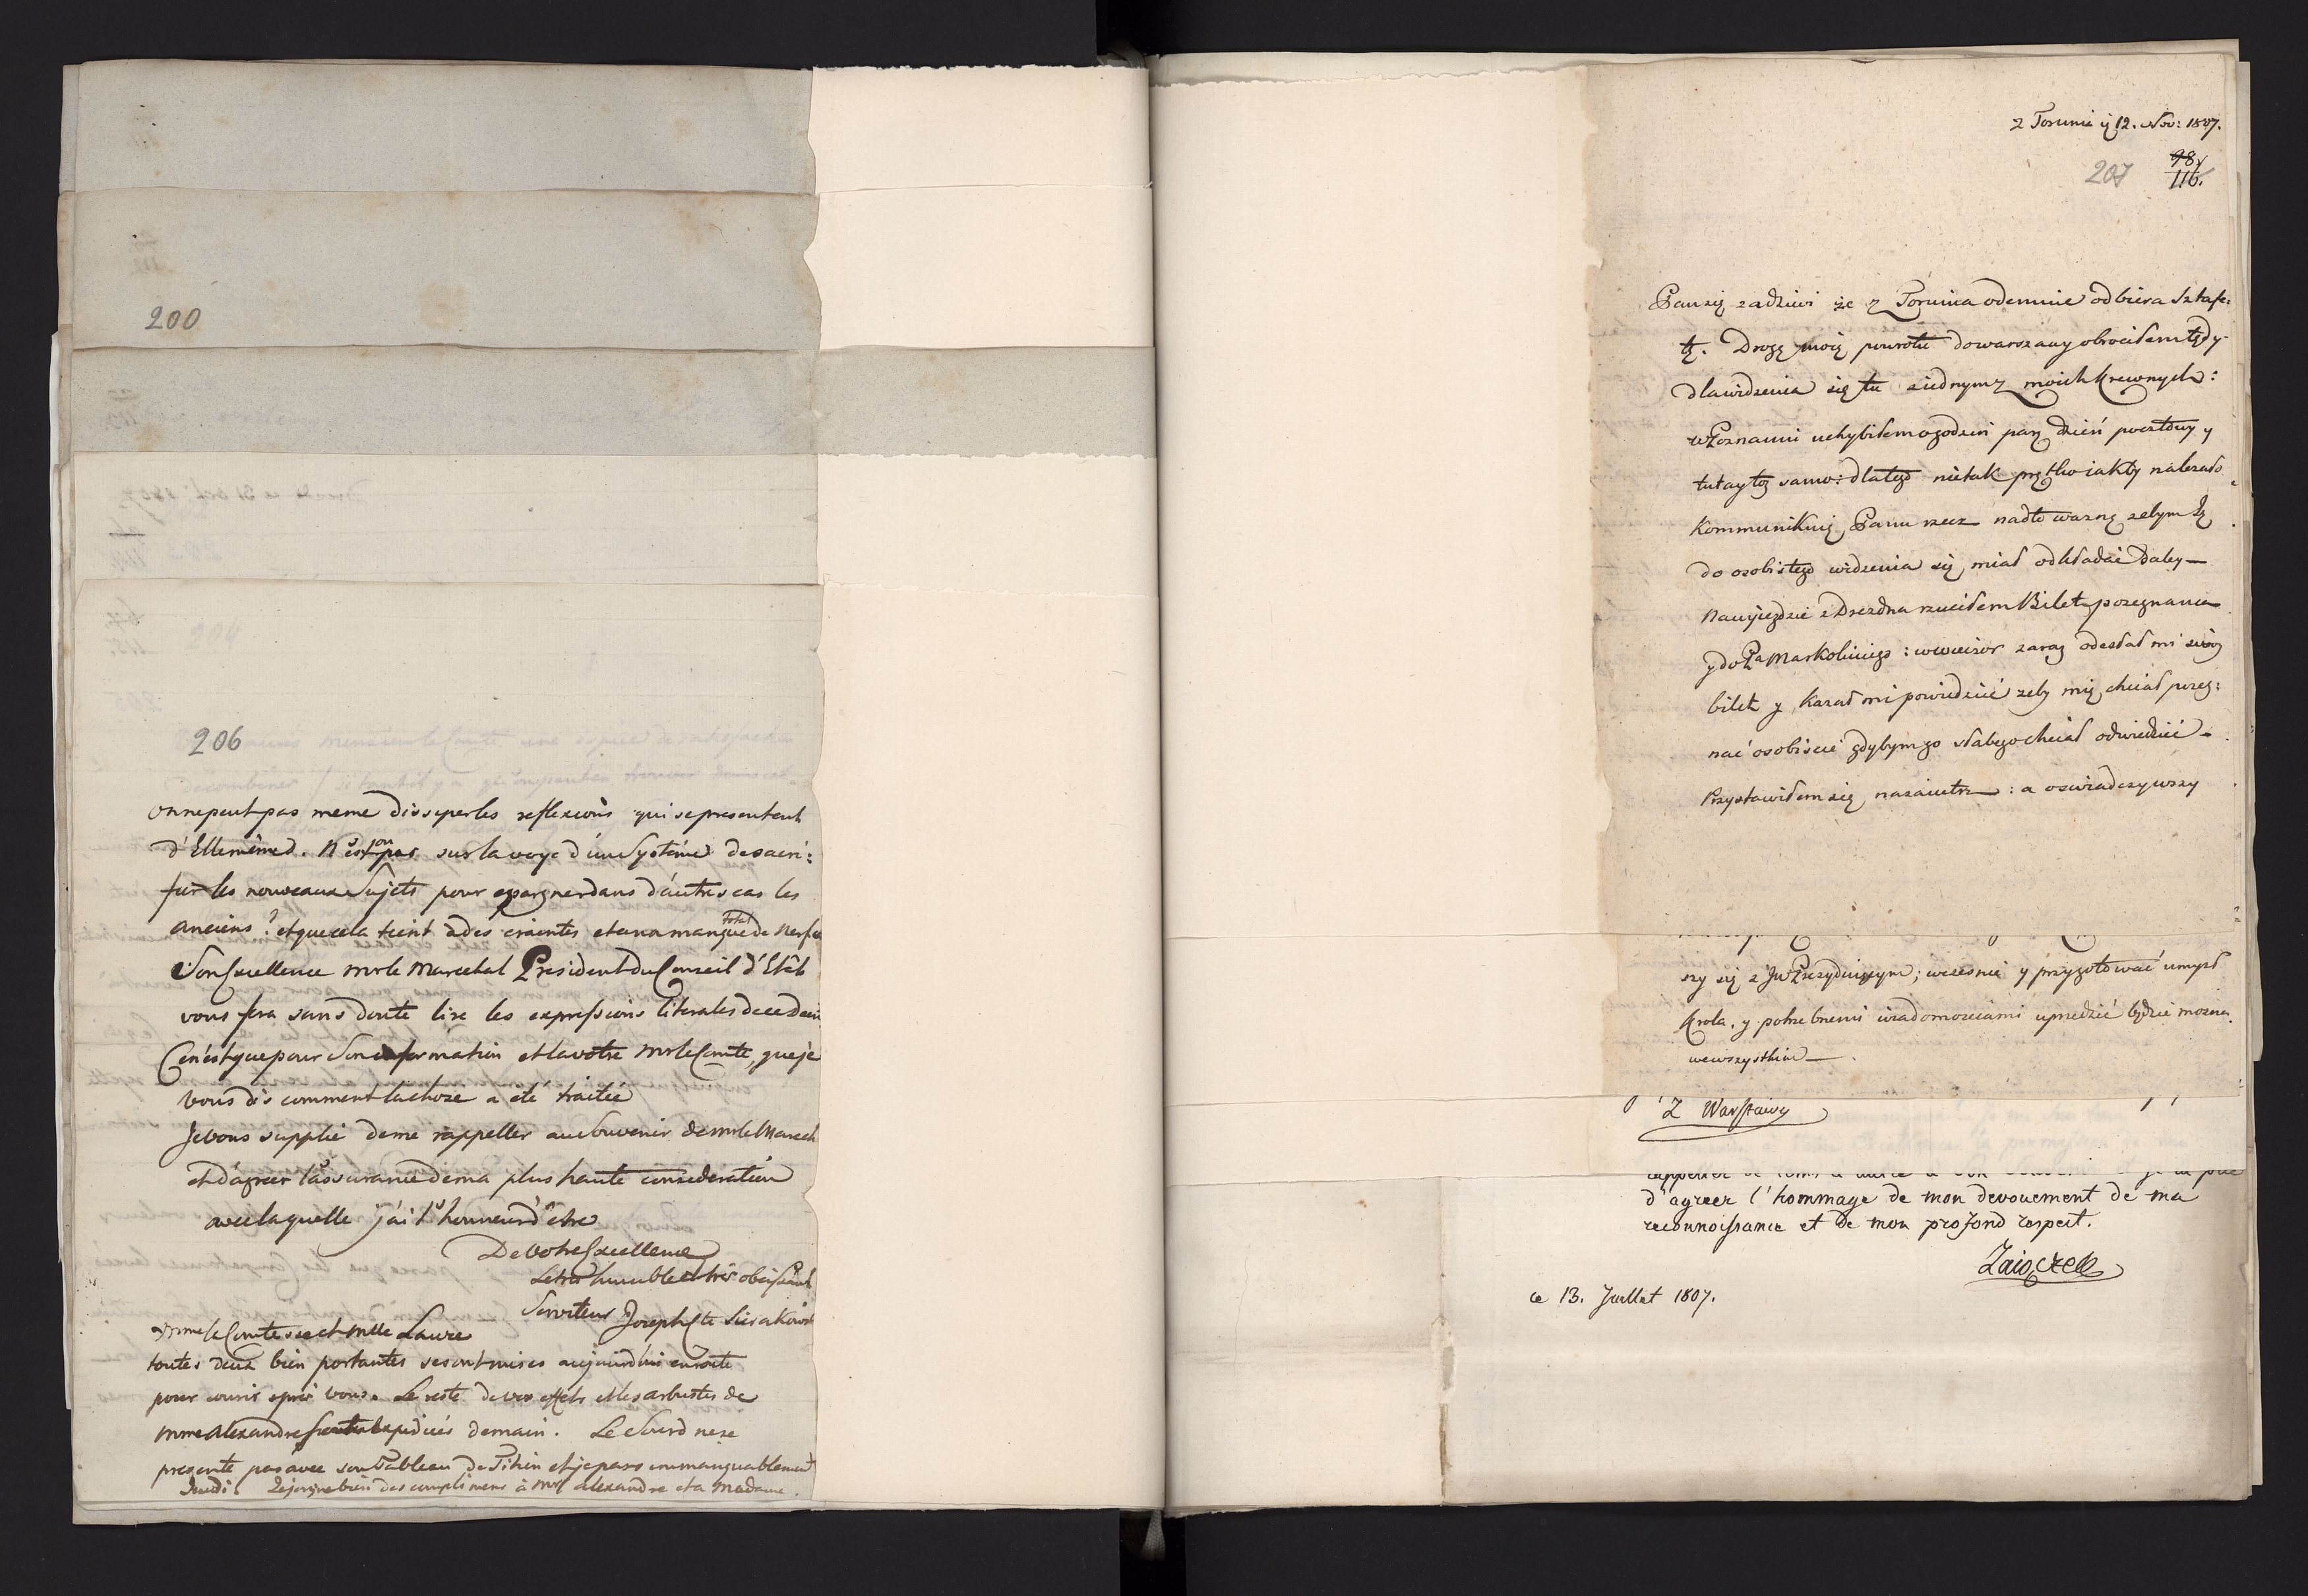 200
206
on ne peut pas meme dissiper les reflexions qui se presentent
d'Ellememes. N'est on pas sur la voye d'un Systême de sacri:
fier les nouveaux Sujets pour epargner dans d'autres cas les
anciens? et que cela tient a des craintes et a un manque total de Nerf
Son Excellence Mr le Marechal President du Conseil d'Etât
vous fera sans doute lire les expressions literales de ce
Ce n'est que pour Son information et la votre Mr le Comte, que je
vous dis comment la chose a été traitée
Je vous supplie de me rappeller au Souvenir de Mr le Marech
et d'agreer l'assurance de ma plus haute consideration
avec laquelle j'ai l'honneur d'etre
De Votre Excellence
Le tres humble et très obeissant
Serviteur Joseph Cte Sierakowsk
Mme la Comtesse et Mlle Laure
toutes deux bien portantes se sont mises aujourdhui en route
pour courir après vous. Le reste de vos effets et les arbustes de
Mme Alexandre seront expediées demain. Le Sourd ne se
presente pas avec son Tableau de Titien et je pars immanquablement
Jeudi. bien des complimens à Mr Alexandre et a Madame.
z Torunia y 12. Nov: 1807.
207 98
116.
Pan się zadziwi że z Torunia odemnie odbiera Sztafe:
tę. Drogę moię powrotu do warszawy obrociłem tędy
dla widzenia się tu z iednym z moich krewnych:
w Poznaniu uchybiłem o godzin parę dzień pocztowy y
tutay toż samo: dlatego nie tak prętko iakby należało
Kommunikuię Panu rzecz nadto ważną żebym Ią
do osobistego widzenia się miał odkładać daley —
Na wyiezdzie z Drezdna rzuciłem Bilet pożegnania
y do Pa Markoliniego: w wieczor zaraz odesłał mi swoy
bilet y kazał mi powiedzieć żeby mię chciał pożeg:
nać osobiscie gdybym go słabego chciał odwiedzić —
Przystawiłem się nazaiutrz: a oswiadczywszy
szy się z JW Prezyduiącym, wczesnie y przygotować umysł
Krola, y potrzebnemi wiadomosciami uprzedzić będzie można
we wszystkim —
Z Warszawy
d'agreer l'hommage de mon devouement de ma
reconnoissance et de mon profond respect.
Zaiączek
ce 13. Juillet 1807.